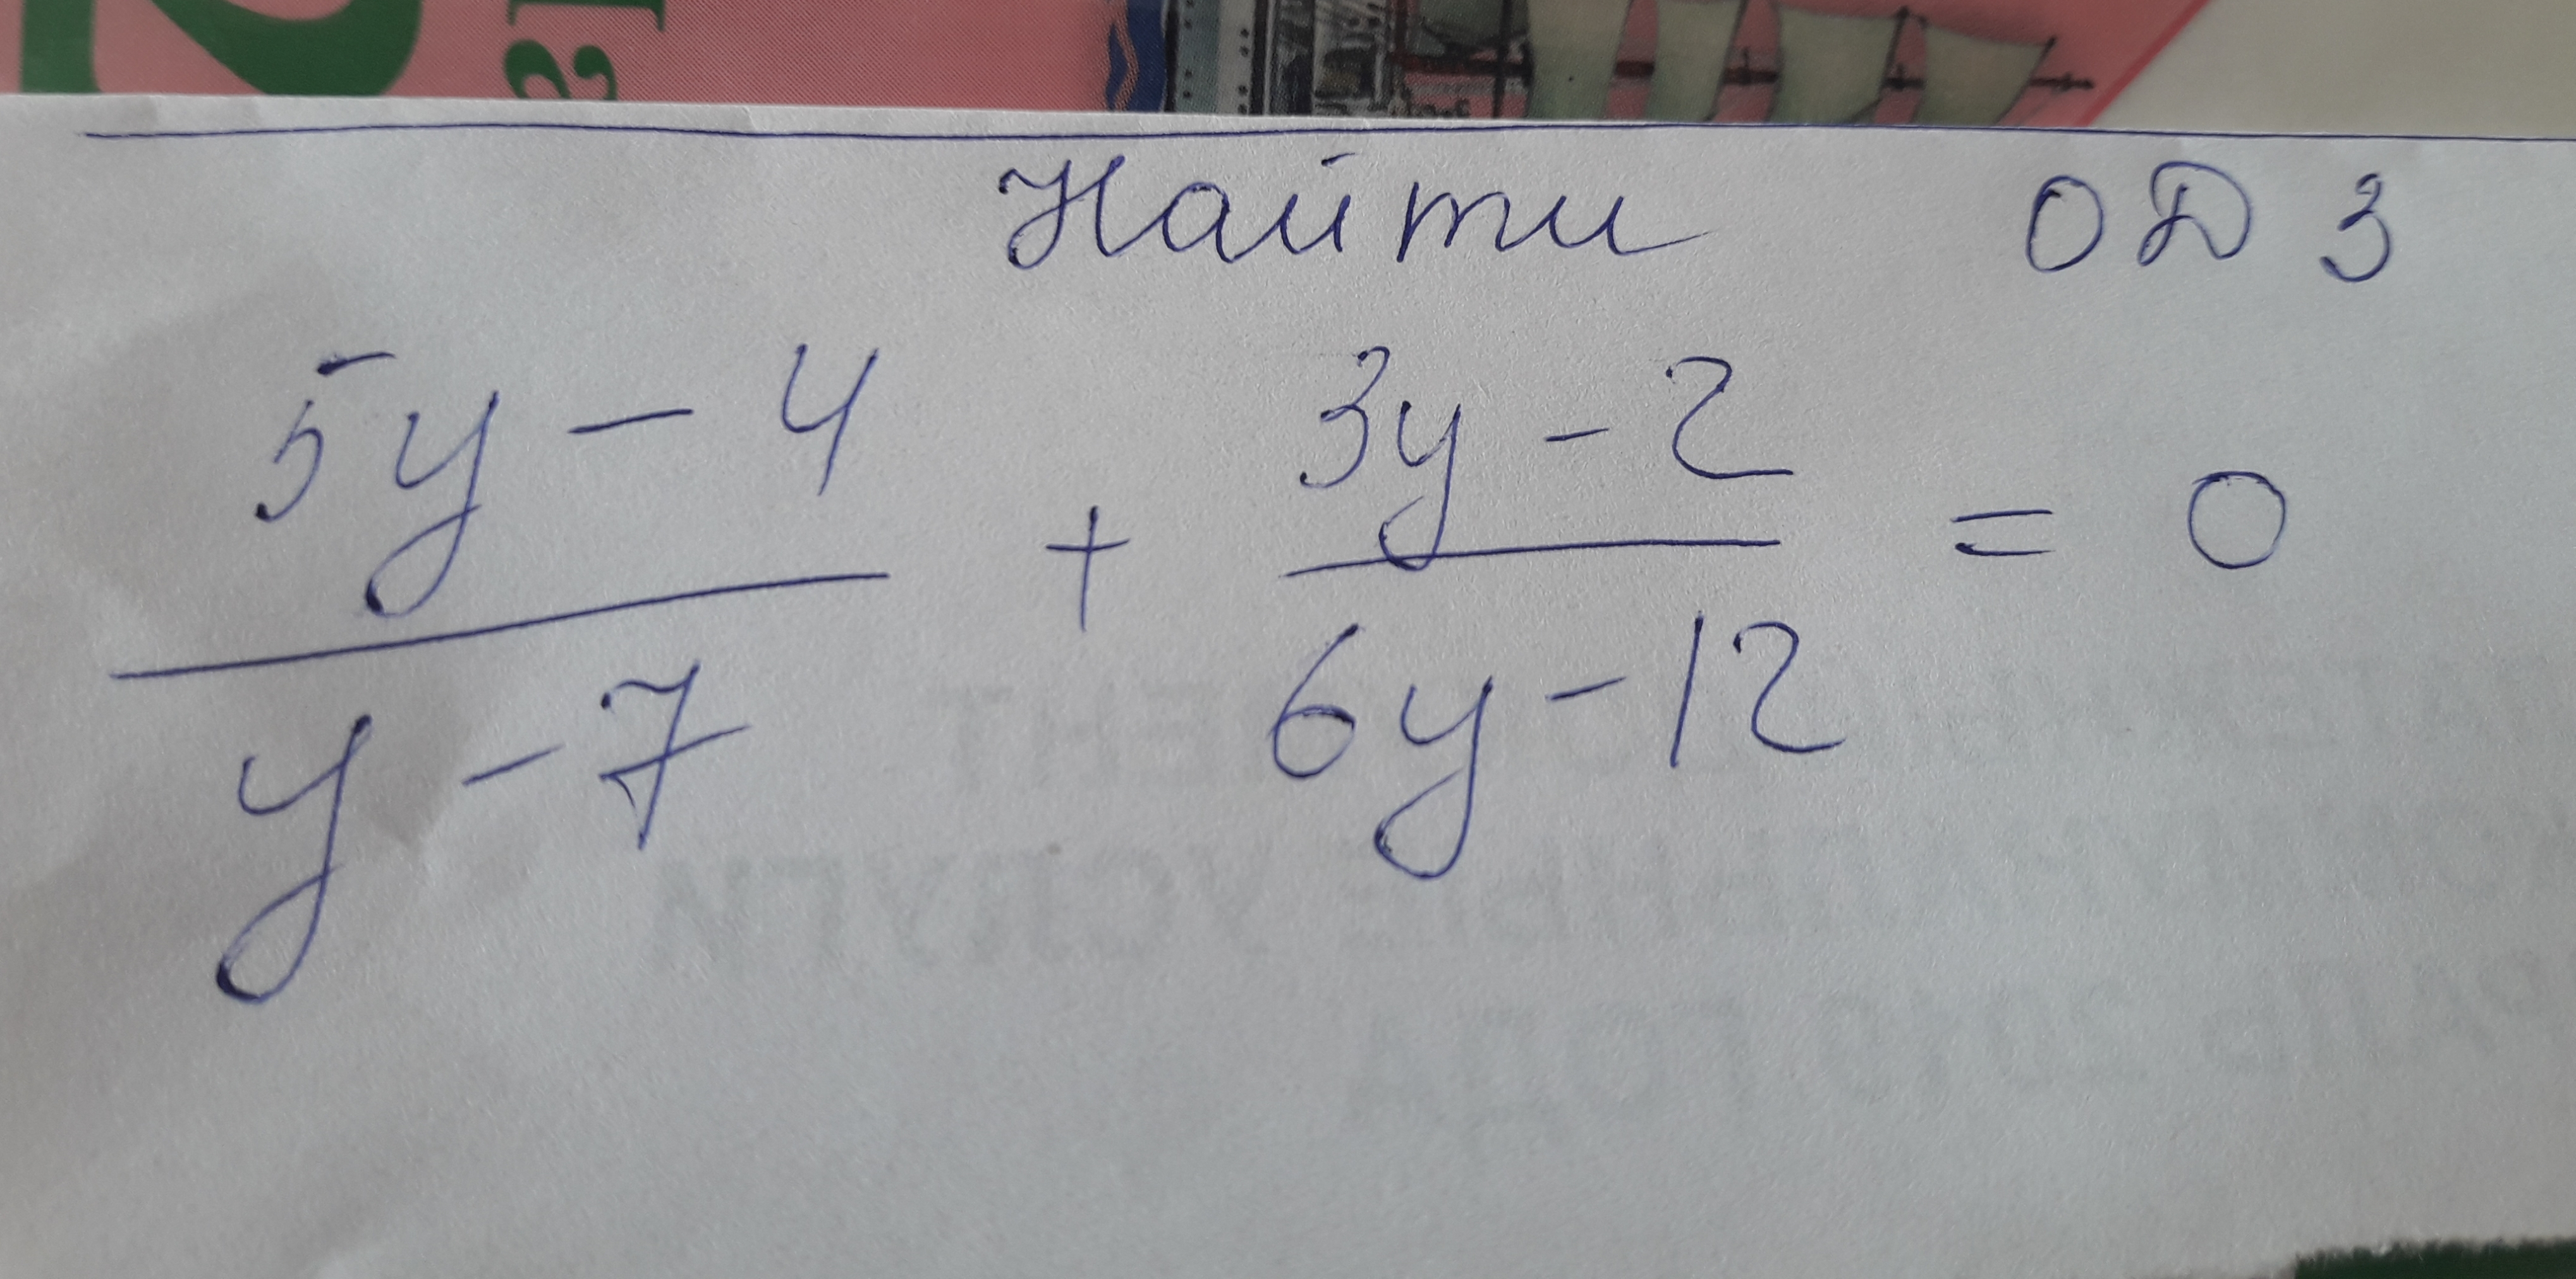 Найти ОДЗ
5y - 4 / y - 7 + 3y - 2 / 6y - 12 = 0